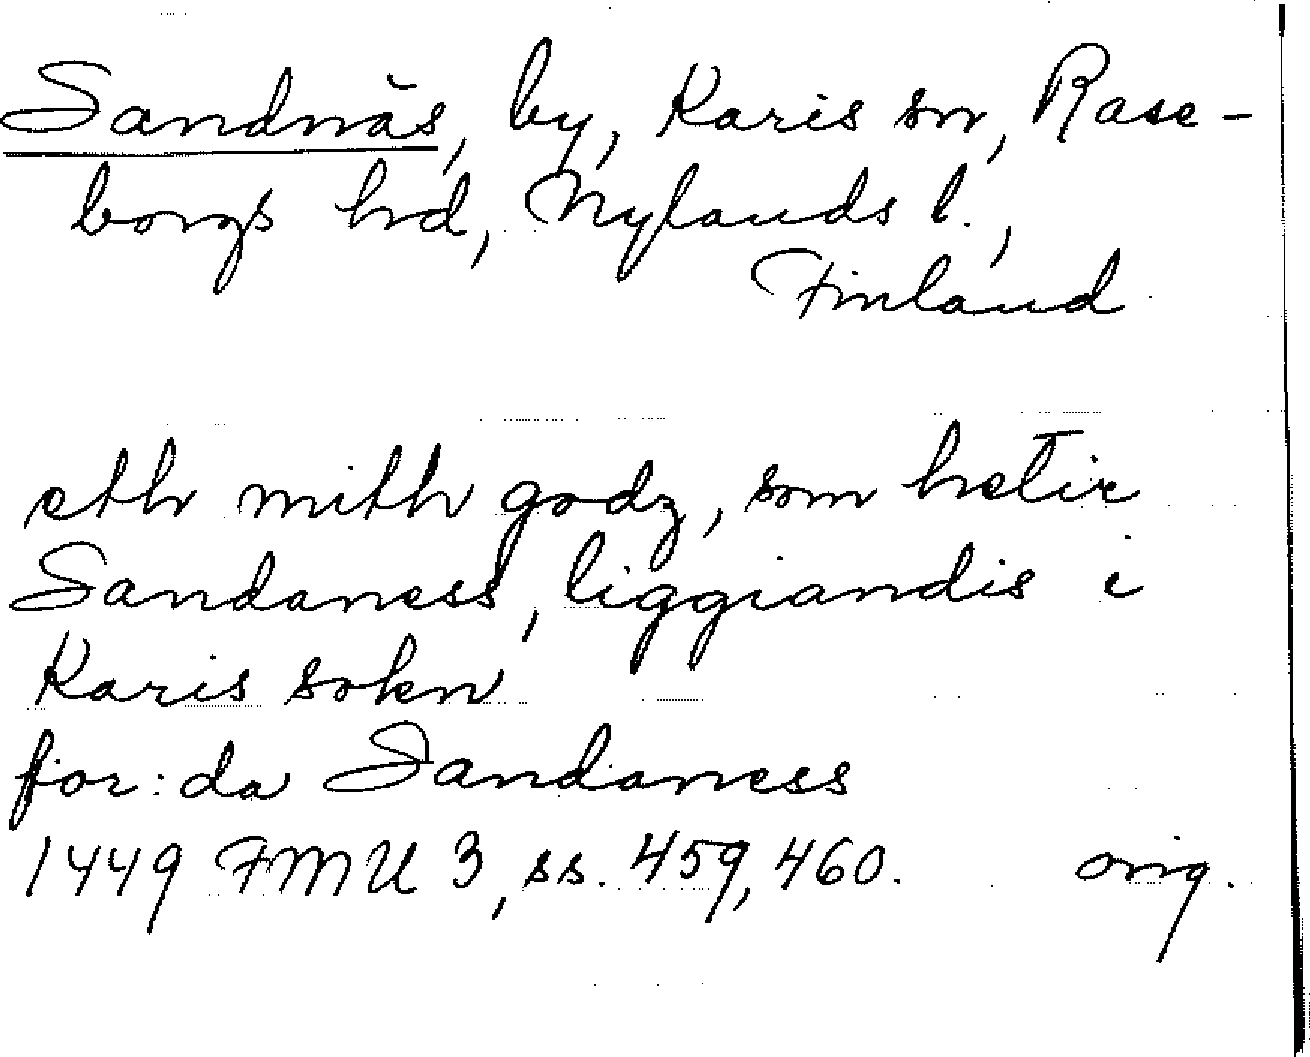 Sandnäs, by, Karis sn, Rase-
borgs hd, Nylands l.,
Finland
eth mith godz, som hetir
Sandaness, liggiandis i
Karis sokn
for:da Sandaness
1449 FMU 3, ss. 459, 460. orig.